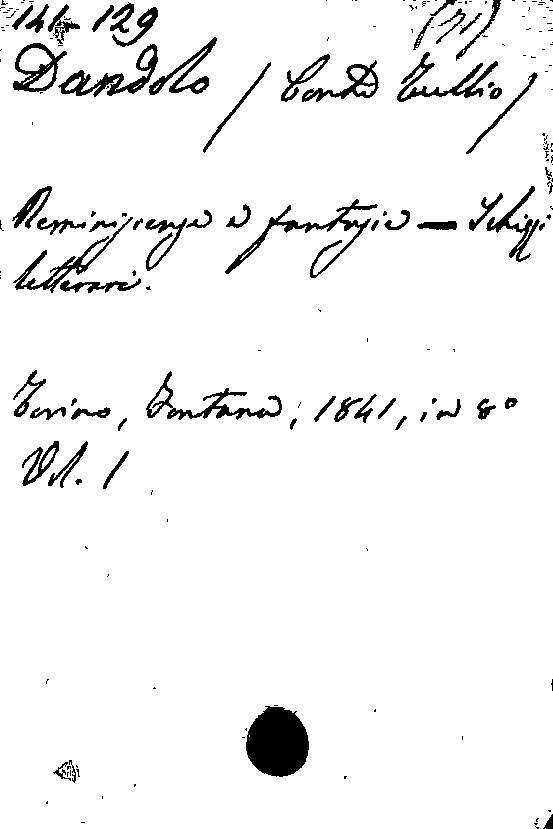 141-129 (71)
Dandolo (Conte Tullio)
Reminiscenze e fantasie — Schizzi
letterari.
Torino, Fontana, 1841, in 8°
Vol. 1